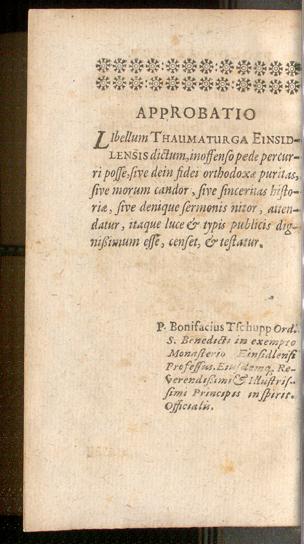 APPROBATIO
Libellum THAUMATURGA EINSID-
LENSIS dictum, inoffenso pede percur-
ri posse, sive dein fidei orthodoxæ puritas,
sive morum candor, sive sinceritas histo-
riæ, sive denique sermonis nitor, atten-
datur, itaque luce & typis publicis dig-
nissimum esse, censet, & testatur.
P. Bonifacius Tschupp Ord.
S. Benedicti in exempto
Monasterio Einsidlensi
Professus. Ejusdemq, Re-
verendissimi & Illustris-
simi Principis in spirit.
Officialis.